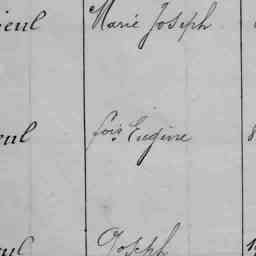 ieul Marie Joseph
eul fois Eugène
eul Joseph